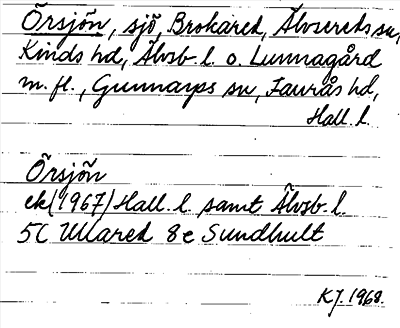 Örsjön, sjö, Brohared, Älvsereds sn,
Kinds hd, Älvsb. l. o. Lunnagård
m. fl., Gunnarps sn, Faurås hd,
Hall. l.
Örsjön
ek (1967) Hall. l. samt Älvsb. l.
5C Ullared 8e Sundhult
KJ. 1968.